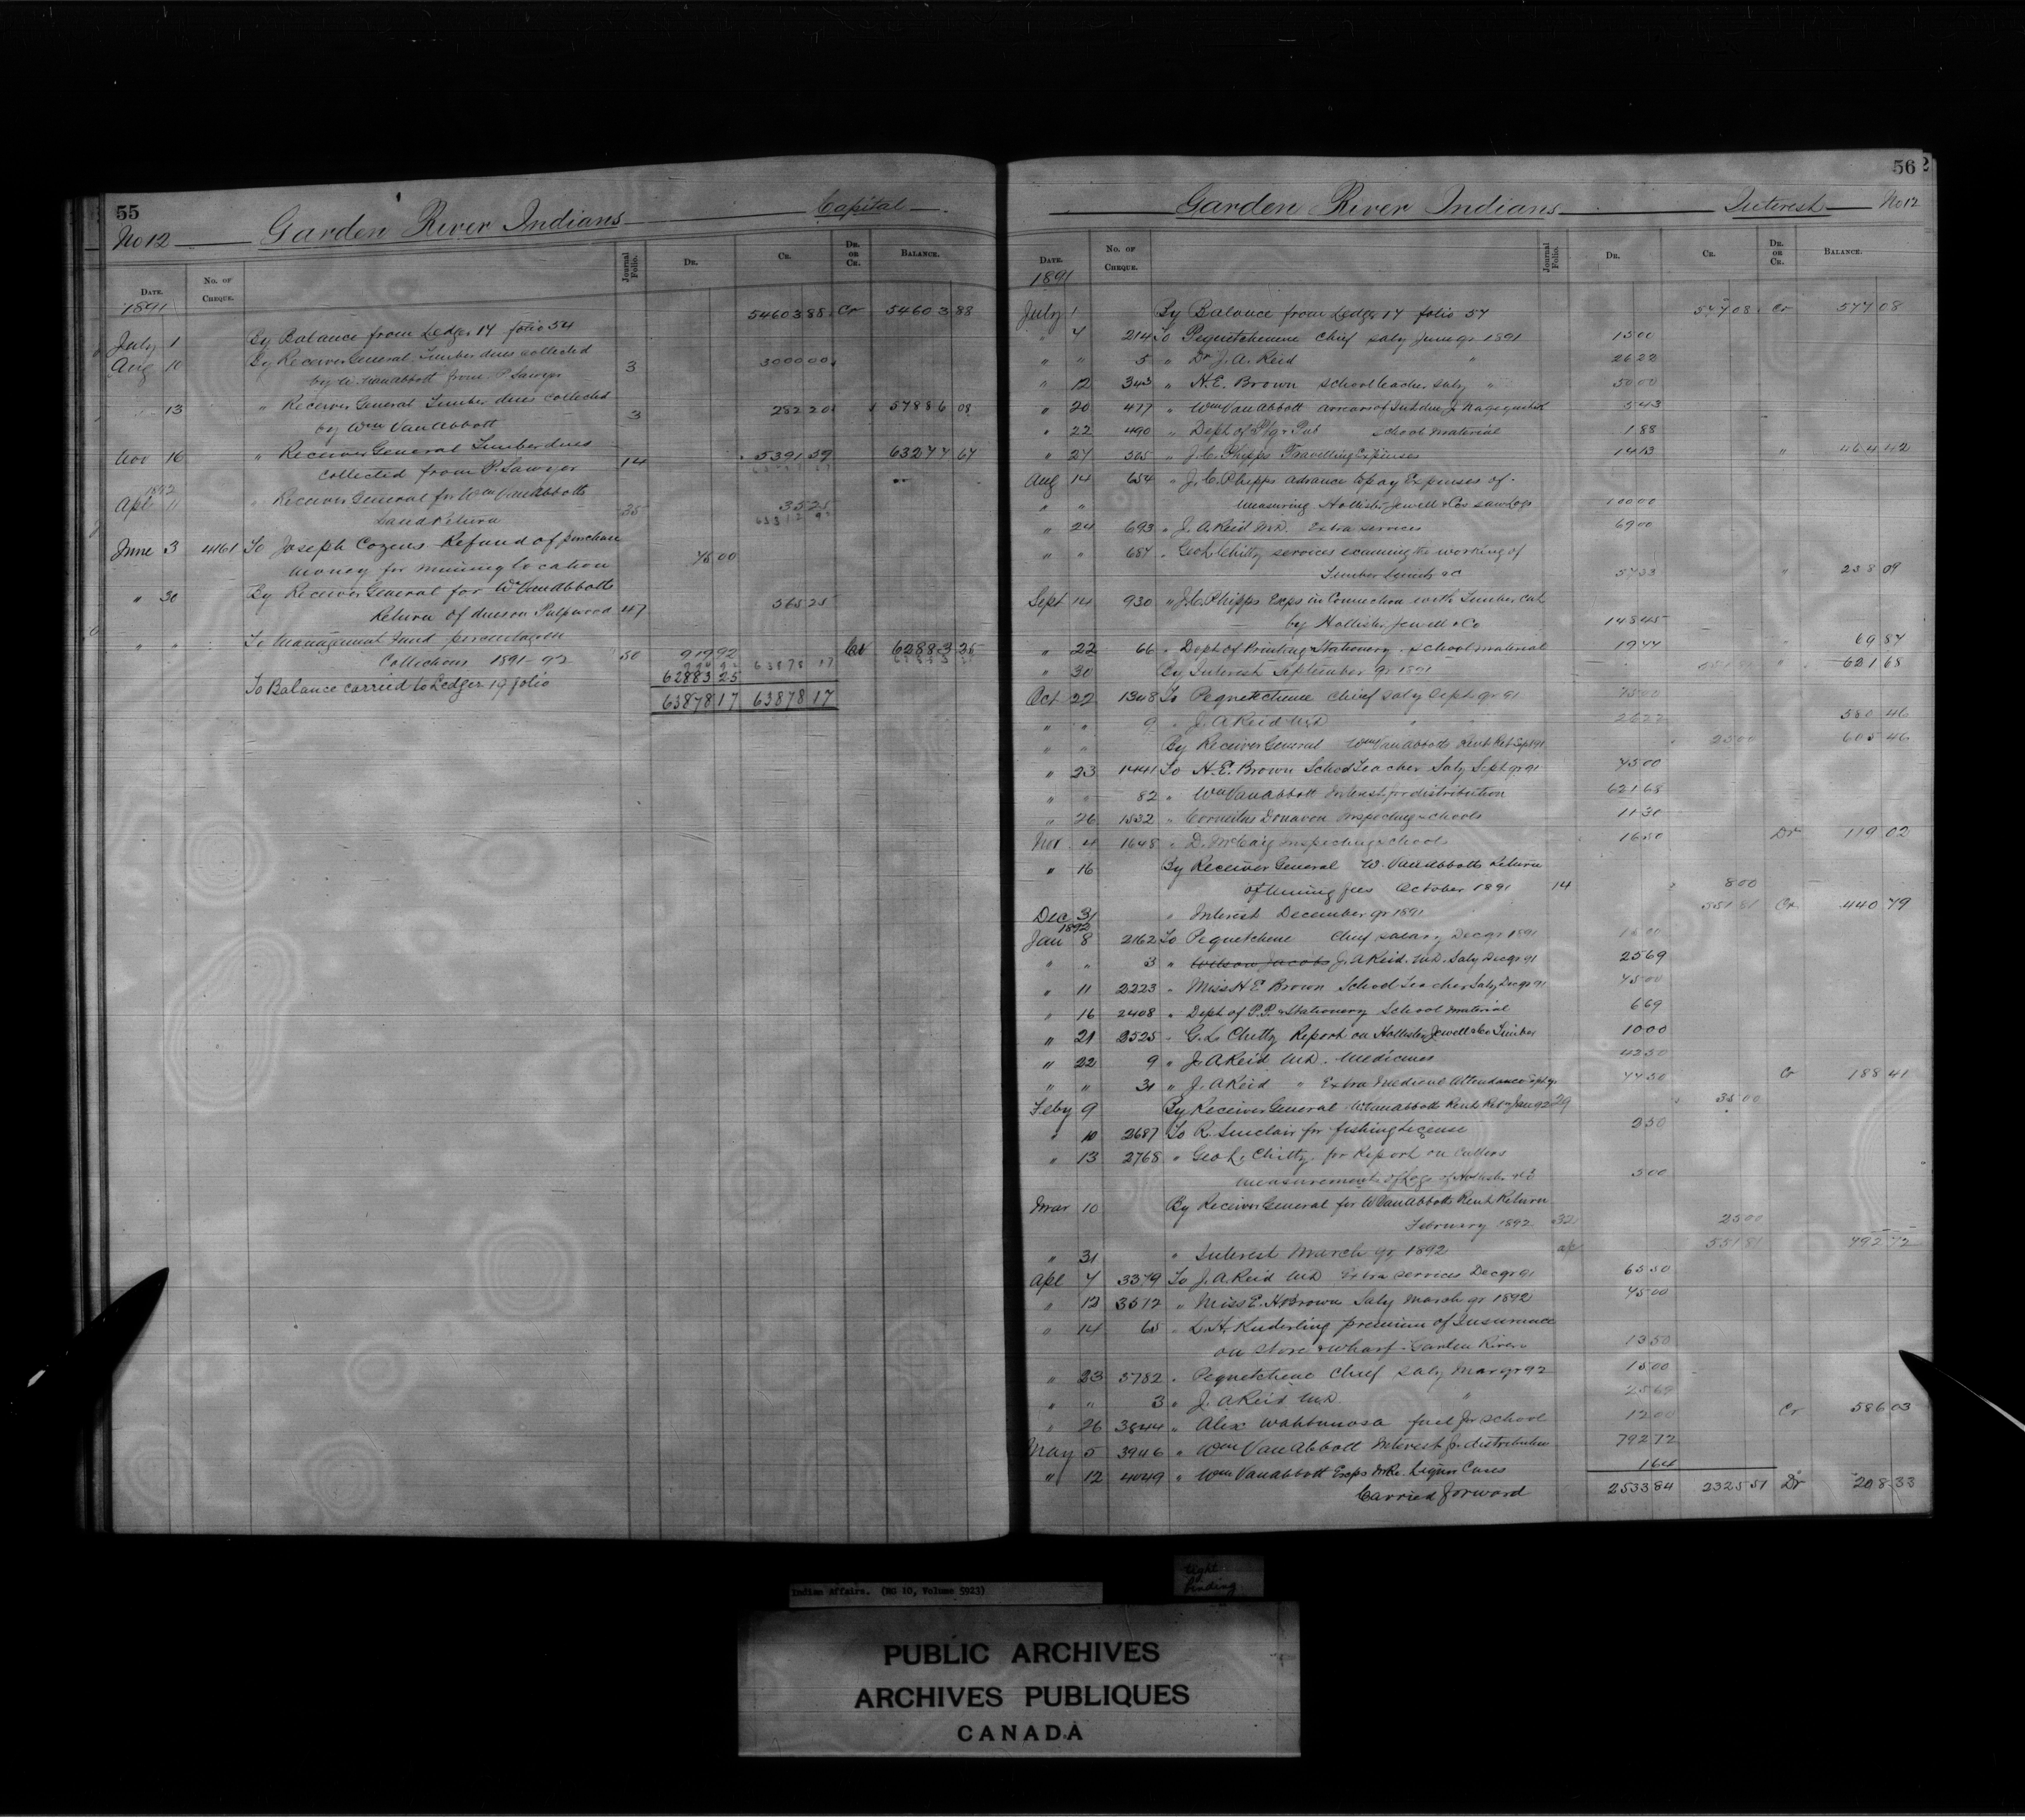 55
No 12 Garden River Indians Capital
DATE. No. OF CHEQUE. Journal Folio. DR. CR. DR. OR CR. BALANCE.
1891
July 1 By Balance from Ledger 17 folio 54 54603 88 Cr 54603 88
Aug 10 By Receiver General Timber dues collected
by W. VanAbbott from P. Sawyer 3 3000 00
13 " Receiver General Timber dues collected
by Wm VanAbbott 3 282 20 57886 08
Nov 16 " Receiver General Timber dues
collected from P. Sawyer 14 5391 59 63277 67
1892
Apl 11 " Receiver General for Wm VanAbbotts
Land Return 35 35 25
June 3 4161 To Joseph Cozens Refund of purchase
money for mining location 75 00
" 30 By Receiver General for W VanAbbotts
Return of dues on Pulpwood 47 565 25
" " To Management Fund percentage on
Collections 1891-92 50 919 92 Cr 62883 25
To Balance carried to Ledger 19 folio 62883 25
63878 17 63878 17
56
Garden River Indians Interest No 12
DATE. No. OF CHEQUE. Journal Folio. DR. CR. DR. OR CR. BALANCE.
1891
July 1 By Balance from Ledger 17 folio 57 577 08 Cr 577 08
" 4 214 To Pequetchenene Chief saly June qr 1891 15 00
" " 5 " Dr J. A. Reid " 26 22
" 12 343 " H. E. Brown school teacher saly " 50 00
" 20 477 " Wm VanAbbott arrears of Int due J. 5 43
" 22 490 " Dept of P'tg & Pub school material 1 88
" 27 565 " J. C. Phipps Travelling Expenses 14 13 " 464 42
Aug 14 654 " J. C. Phipps advance to pay Expenses of
" " measuring Hollister Jewell & Cos saw logs 100 00
" 24 693 " J. A. Reid M.D. Extra services 69 00
" " 687 " Geo L. Chitty services examining the working of
Timber limits &c 57 33 " 238 09
Sept 14 930 " J. C. Phipps Exps in Connection with Timber cut
by Hollister Jewell & Co 148 45
" 22 66 " Dept of Printing & Stationery School material 19 77 69 87
" 30 By Interest September qr 1891 551 81 " 621 68
Oct 22 1348 To Pequetchene Chief saly Sept qr 91 15 00
" " 9 " J. A Reid M.D " 26 22 580 46
" " By Receiver General Wm VanAbbotts Rent Ret Sept 91 25 00 605 46
" 23 1441 To H. E. Brown School Teacher Saly Sept qr 91 75 00
" " 82 " Wm VanAbbott Interest for distribution 621 68
" 26 1532 " Cornelius Donavon Inspecting schools 11 30
Nov 4 1648 " D. McCaig Inspecting schools 16 50 Dr 119 02
" 16 By Receiver General W. VanAbbotts Return
of mining fees October 1891 14 8 00
Dec 31 " Interest December qr 1891 551 81 Cr 440 79
1892
Jan 8 2162 To Pequetchene Chief salary Dec qr 1891 15 00
" " 3 " Wilson Jacobs J. A Reid. M.D. Saly Dec qr 91 25 69
" 11 2223 " Miss H E Brown School Teacher Saly Dec qr 91 75 00
" 16 2408 " Dept of P. P. & Stationery School material 6 69
" 21 2525 " G. L. Chitty Report on Hollister Jewell &Co Timber 10 00
" 22 9 " J. A Reid M.D. Medicines 42 50
" " 31 " J. A Reid " Extra Medical Attendance Sept qr 77 50 Cr 188 41
Feby 9 By Receiver General W. VanAbbotts Rent Ret Jan 92 29 35 00
" 10 2687 To R. Sinclair for fishing License 2 50
" 13 2768 " Geo L. Chitty for Report on Cullers
measurement of Logs of Hollister & Co 5 00
Mar 10 By Receiver General for W VanAbbotts Rent Return
February 1892 32 25 00
" 31 " Interest March qr 1892 551 81 792 72
Apl 7 3379 To J. A. Reid M.D Extra services Dec qr 91 65 50
" 12 3512 " Miss E. H Brown Saly March qr 1892 75 00
" 14 65 " L. H. Kuderling premium of Insurance
on store & wharf Garden River 13 50
" 23 3782 " Pequetchene Chief saly Mar qr 92 15 00
" " 3 " J. A Reid M.D. " 25 69
" 26 3844 " Alex Wahbunosa fuel for school 12 00 Cr 586 03
May 5 3946 " Wm VanAbbott Interest for distribution 792 72
" 12 4049 " Wm VanAbbott Exps In Re. Liquor Cases 1 64
Carried forward 2533 84 2325 51 Dr 208 33
Indian Affairs. (RG 10, Volume 5923)
tight
binding
PUBLIC ARCHIVES
ARCHIVES PUBLIQUES
CANADA